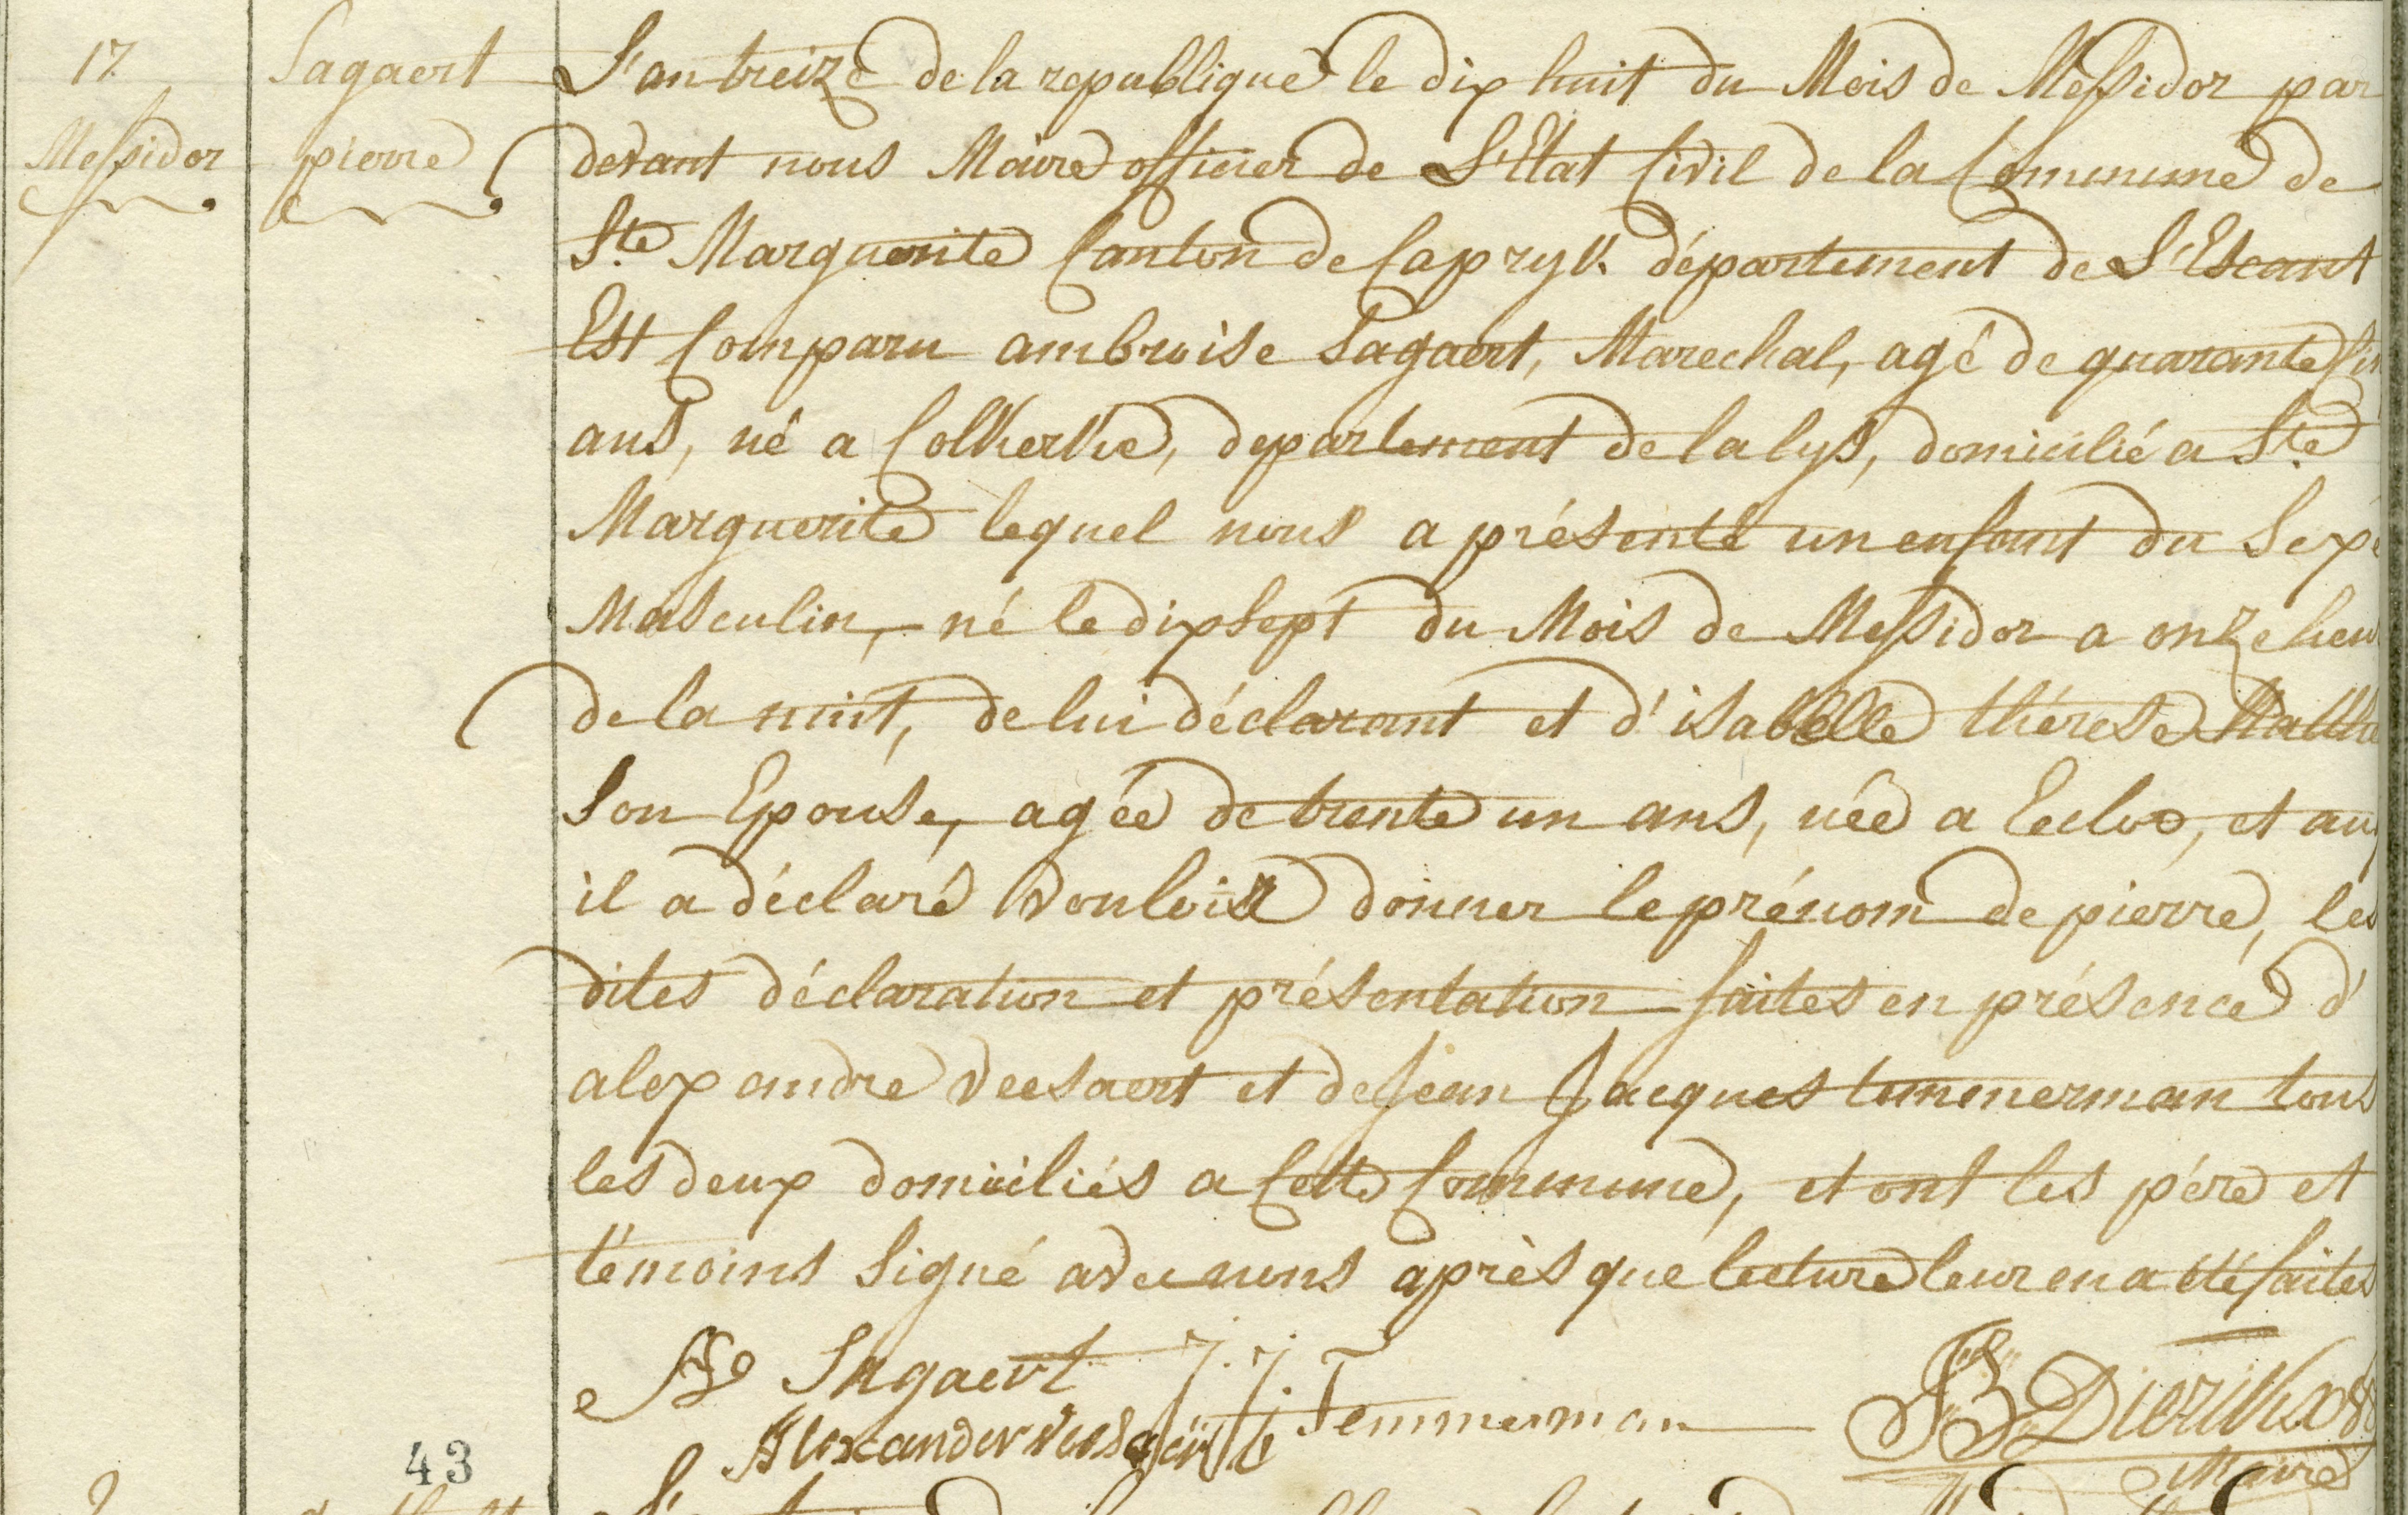 17.
Messidor
Sagaert
pierre
L'an treize de la republique le dix huit du Mois de Messidor par
devant nous Maire officier de L'Etat Civil de la Commune de
Ste Marguerite Canton de Capryk département de L'Escaut
Est Comparu ambroise Sagaert, Marechal, agé de quarante
ans, né a Colkerke, departement de la lys, domicilié a Ste
Marguerite lequel nous a présenté un enfant du Sexe
Masculin, né le dix sept du Mois de Messidor a onze heu
de la nuit, de lui déclarant et d'isabelle thérese
Son Epouse, agée de trente un ans, née a Eecloo, et au
il a déclaré Vouloir donner le prénom de pierre, les
dites déclaration et présentation faites en présence d'
alexandre Veesaert et de Jean Jacques temmerman tous
les deux domiciliés a Cette Commune, et ont les pére et
témoins Signé avec nous après que lecture leur en a été faites
Sagaert
J. J. Temmerman
Alexander
JB Dierikx
Maire
43